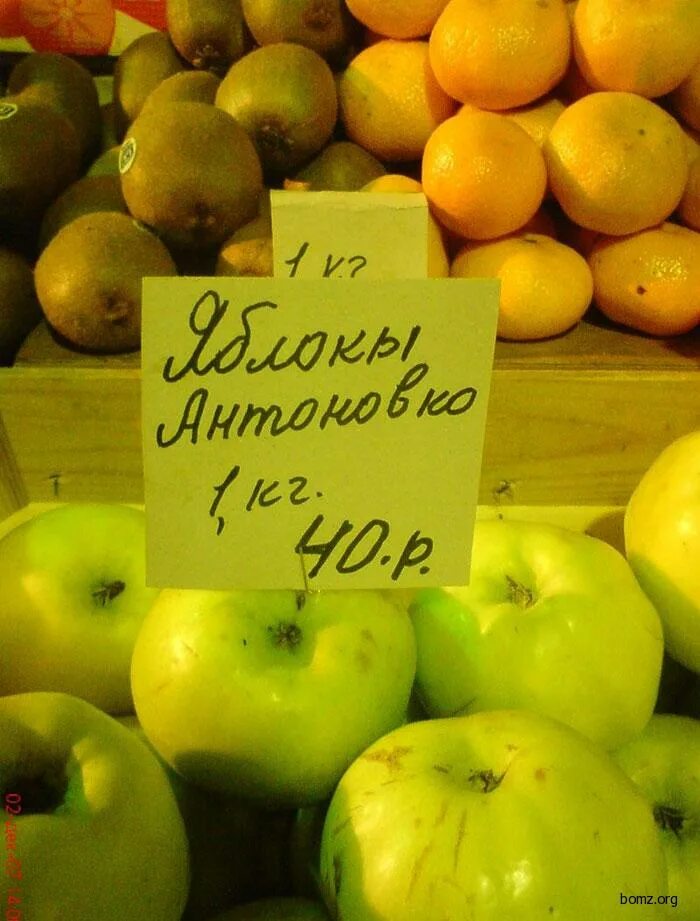 1 кг
Яблоки
Антоновко
1, кг.
40.р.
bomz.org